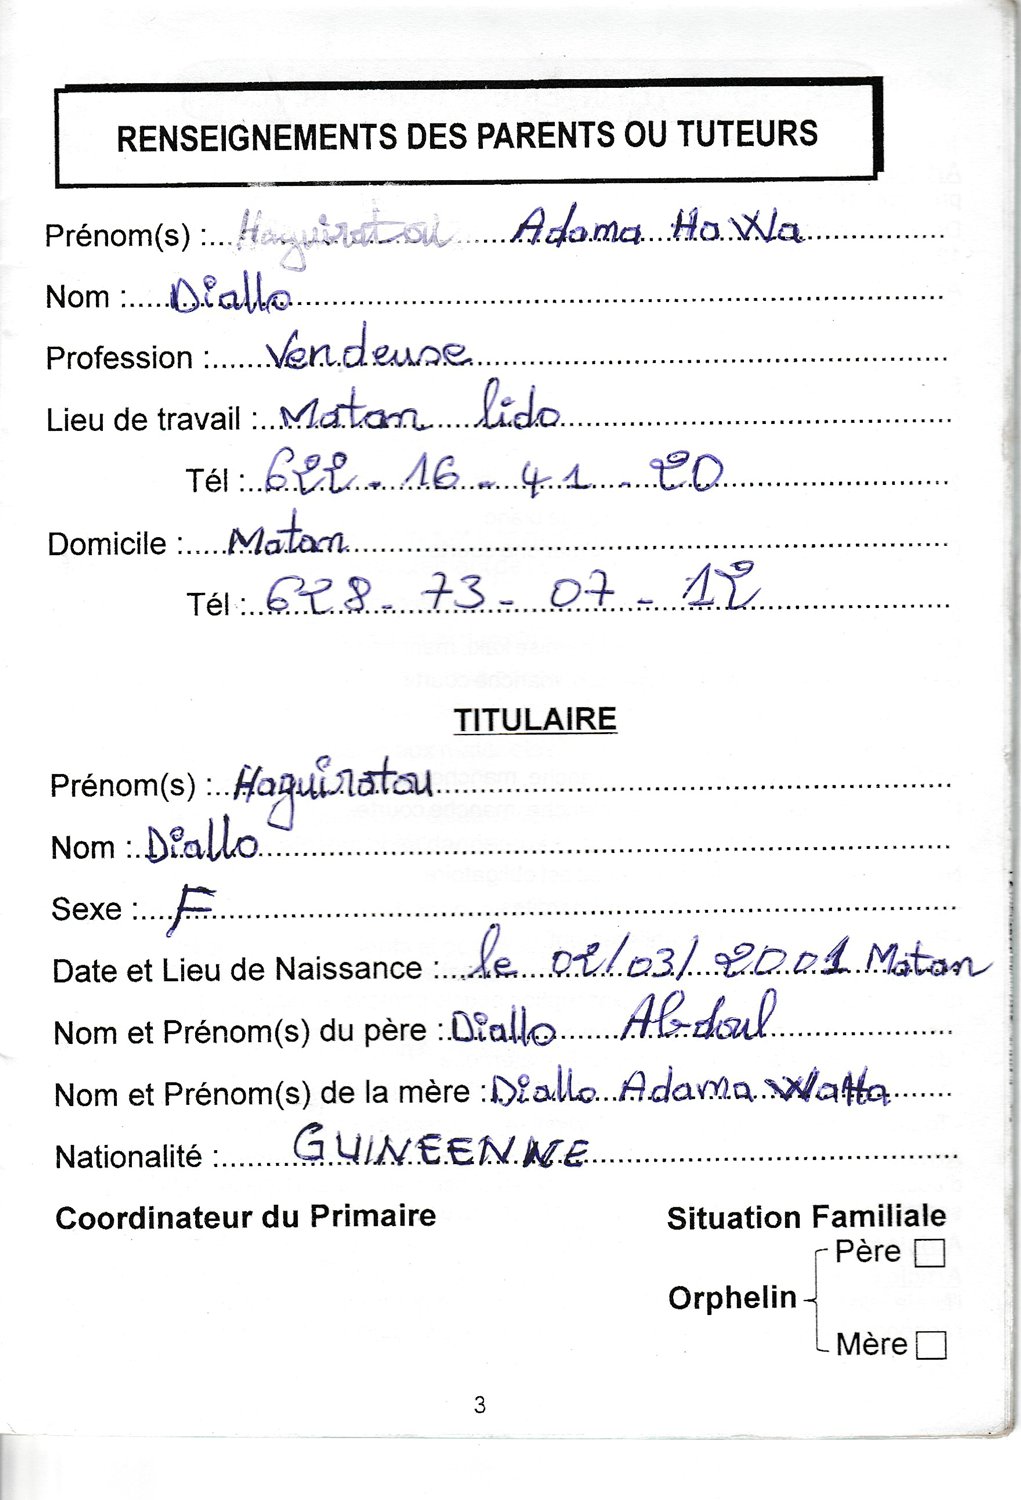 RENSEIGNEMENTS DES PARENTS OU TUTEURS
Prénom(s) : Haguiratou Adama HaWa
Nom : Diallo
Profession : Vendeuse
Lieu de travail : Matam lido
Tél : 622 - 16 - 41 - 20
Domicile : Matam
Tél : 628 - 73 - 07 - 12
TITULAIRE
Prénom(s) : Haguiratou
Nom : Diallo
Sexe : F
Date et Lieu de Naissance : le 02/03/2001 Matam
Nom et Prénom(s) du père : Diallo Abdoul
Nom et Prénom(s) de la mère : Diallo Adama
Nationalité : GUINEENNE
Coordinateur du Primaire
Situation Familiale
Père
Orphelin
Mère
3